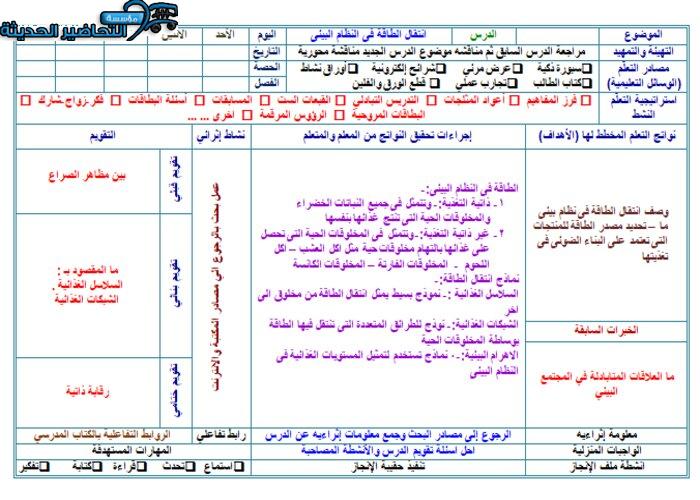 مؤسسة
التحاضير الحديثة
الموضوع
الدرس
انتقال الطاقة فى النظام البيئى
اليوم
الأحد
الاثنين
التهيئة والتمهيد
مراجعة الدرس السابق ثم مناقشه موضوع الدرس الجديد مناقشة محورية
التاريخ
مصادر التعلم
(الوسائل التعليمية)
سبورة ذكية عرض مرئي شرائح إلكترونية أوراق نشاط
كتاب الطالب تجارب عملي قطع الورق والفلين
الحصة
الفصل
استراتيجية التعلم
النشط
فرز المفاهيم أعواد المثلجات التدريس التبادلي القبعات الست المسابقات أسئلة البطاقات فكر-زواج-شارك
البطاقات المروحية الرؤوس المرقمة أخرى ... ...
نواتج التعلم المخطط لها (الأهداف)
إجراءات تحقيق النواتج من المعلم والمتعلم
نشاط إثرائي
التقويم
وصف انتقال الطاقة فى نظام بيئى
ما – تحديد مصدر الطاقة للمنتجات
التى تعتمد على البناء الضوئى فى
تغذيتها
الخبرات السابقة
ما العلاقات المتبادلة في المجتمع
البيئي
الطاقة فى النظام البيئى:-
١ - ذاتية التغذية:- وتتمثل فى جميع النباتات الخضراء
والمخلوقات الحية التى تنتج غذائها بنفسها
٢ - غير ذاتية التغذية:- وتتمثل فى المخلوقات الحية التى تحصل
على غذائها بالتهام مخلوقات حية مثل اكل العشب – اكل
اللحوم - المخلوقات القارتة – المخلوقات الكانسة
نماذج انتقال الطاقة:-
السلاسل الغذائية :- نموذج بسيط يمثل انتقال الطاقة من مخلوق الى
اخر
الشبكات الغذائية:- نموذج للطرائق المتعددة التى تنتقل فيها الطاقة
بوساطة المخلوقات الحية
الاهرام البيئية:-٠ نماذج تستخدم لتمثيل المستويات الغذائية فى
النظام البيئى
عمل بحث بالرجوع الي مصادر المكتبة والانترنت
تقويم قبلي
بين مظاهر الصراع
تقويم بنائي
ما المقصود بـ :
السلاسل الغذائية .
الشبكات الغذائية :
تقويم ختامي
رقابة ذاتية
معلومة إثراءيه
الرجوع إلى مصادر البحث وجمع معلومات إثراءيه عن الدرس
رابط تفاعلي
الروابط التفاعلية بالكتاب المدرسي
الواجبات المنزلية
احل اسئلة تقويم الدرس والأنشطة المصاحبة
المهارات المستهدفة
أنشطة ملف الإنجاز
تنفيذ حقيبة الإنجاز
استماع تحدث قراءة كتابة تفكير